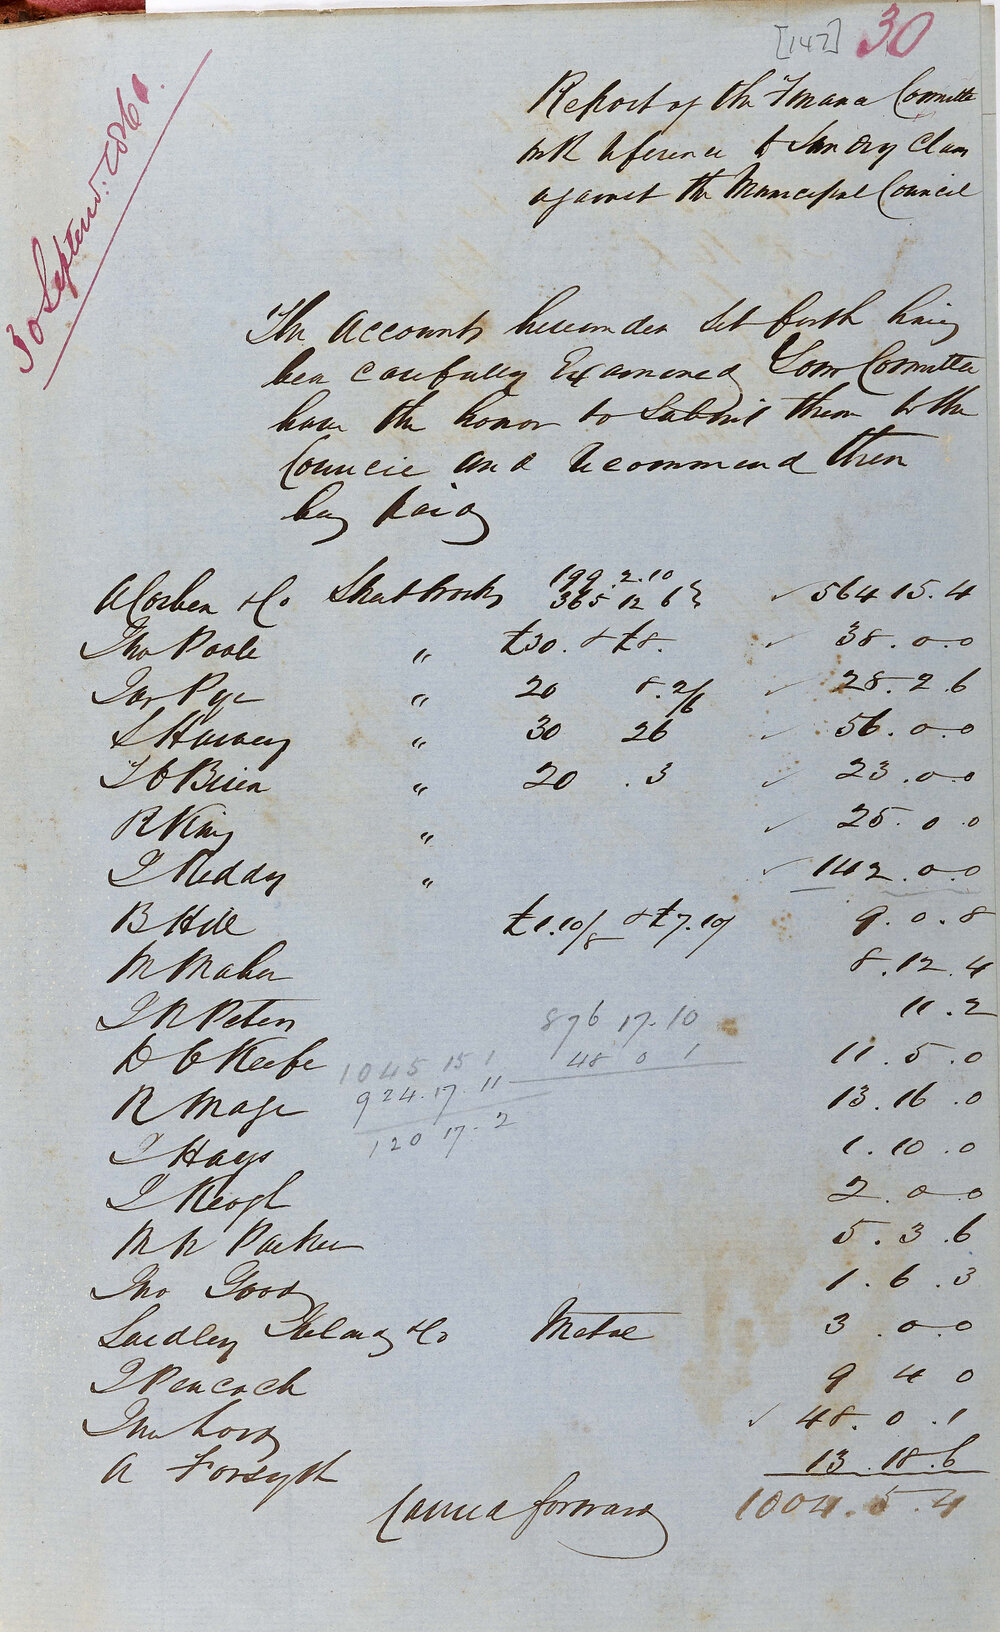 [147] 30
30 Septem. 1861.
Report of the Finance Committee
with reference to Sundry Claims
against the Municipal Council
The Accounts hereunder set forth having
been carefully Examined Your Committee
have the honor to submit them to the
Council and recommend them
being paid
A Corben & Co 199.2.10
365 12 6 } ✓ 564 15.4
Tho Poole " £30. & £8. ✓ 38.0.0
Jas Pye " 20 8.2/6 ✓ 28.2.6
S Harvey " 30 26 ✓ 56.0.0
T O Brien " 20 . 3 ✓ 23.0.0
R King " ✓ 25.0.0
T Reddy " ✓ 142.0.0
B Hill £1.10/8 & £7.10/ 9.0.8
M Maher 8.12.4
J R Peters 11.2
876 17.10
D O Keefe 11.5.0
1045 15 1 48 0 1
R Mage 13.16.0
924.17.11
J Hays 1.10.0
120 17.2
J Keogh 2.0.0
Mr R Parker 5.3.6
Tho Good 1.6.3
Laidley Ireland & Co Metal 3.0.0
J Peacock 9 4 0
Lord ✓ 48.0.1
A Forsyth 13.18.6
Carried forward 1004.5.4